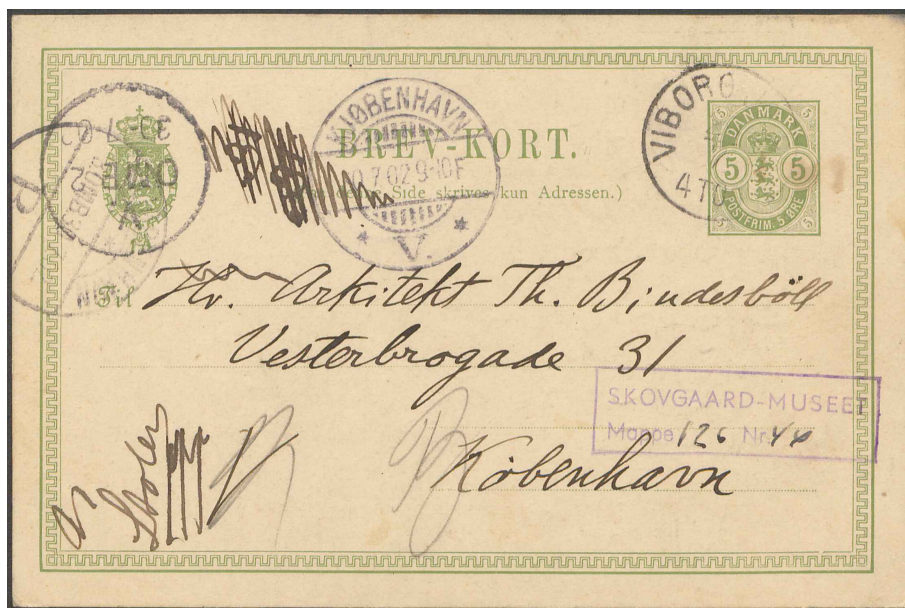 BREV-KORT.
(Paa denne Side skrives kun Adressen.)
KJØBENHAVN
.7.02 9-10F
V.
VIBORG
4TO
DANMARK
5 5
POSTFRIM. 5 ØRE
Til Hr. Arkitekt Th. Bindesböll
Vesterbrogade 31
København
SKOVGAARD-MUSEET
Mappe 126 Nr. 46
B